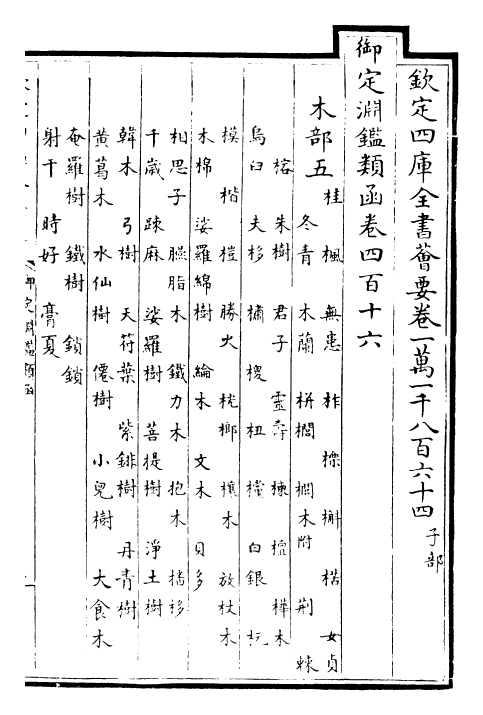 欽定四庫全書薈要卷一萬一千八百六十四 子部
御定淵鑑類函卷四百十六
木部五
桂 楓 無患 柞 櫟 槲 楛 女貞
冬青 木蘭 栟櫚 櫚木附 荆 棘
榕 朱樹 君子 靈壽 楝 檀 樺木
烏臼 夫栘 橚 椶 杻 檍 白銀 杬
模 楷 榿 勝火 桄榔 櫰木 放杖木
木棉 娑羅綿樹 綸木 文木 貝多
相思子 臙脂木 鐵力木 抱木
千歲 踈麻 娑羅樹 菩提樹 淨土樹
韓木 弓樹 天符葉 紫緋樹 丹青樹
黄葛木 水仙樹 僊樹 小兒樹 大食木
奄羅樹 鐵樹 鎖鎖
射干 時好 膏夏
御定淵鑑類函